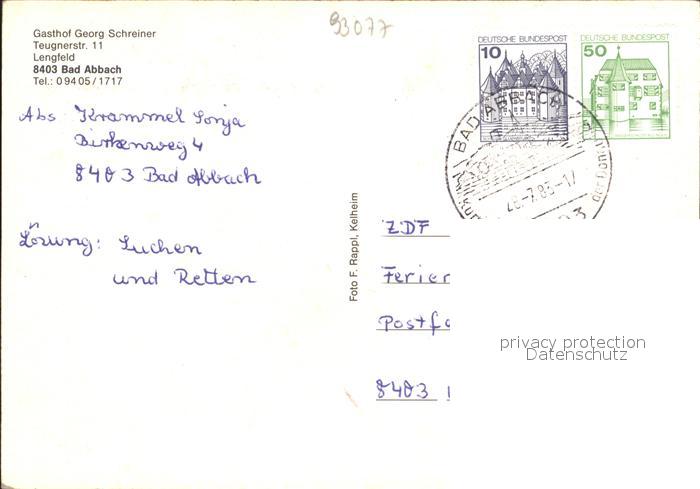 93077
Gasthof Georg Schreiner
Teugnerstr. 11
Lengfeld
8403 Bad Abbach
Tel.: 0 94 05 / 1717
DEUTSCHE BUNDESPOST
10
DEUTSCHE BUNDESPOST
50
BAD ABBACH
Abs Krammel Sonja
Birkenweg 4
8403 Bad Abbach
Lösung: Suchen
und Retten
Foto F. Rappl, Kelheim
ZDF
Ferier
Postfa
8403
privacy protection
Datenschutz